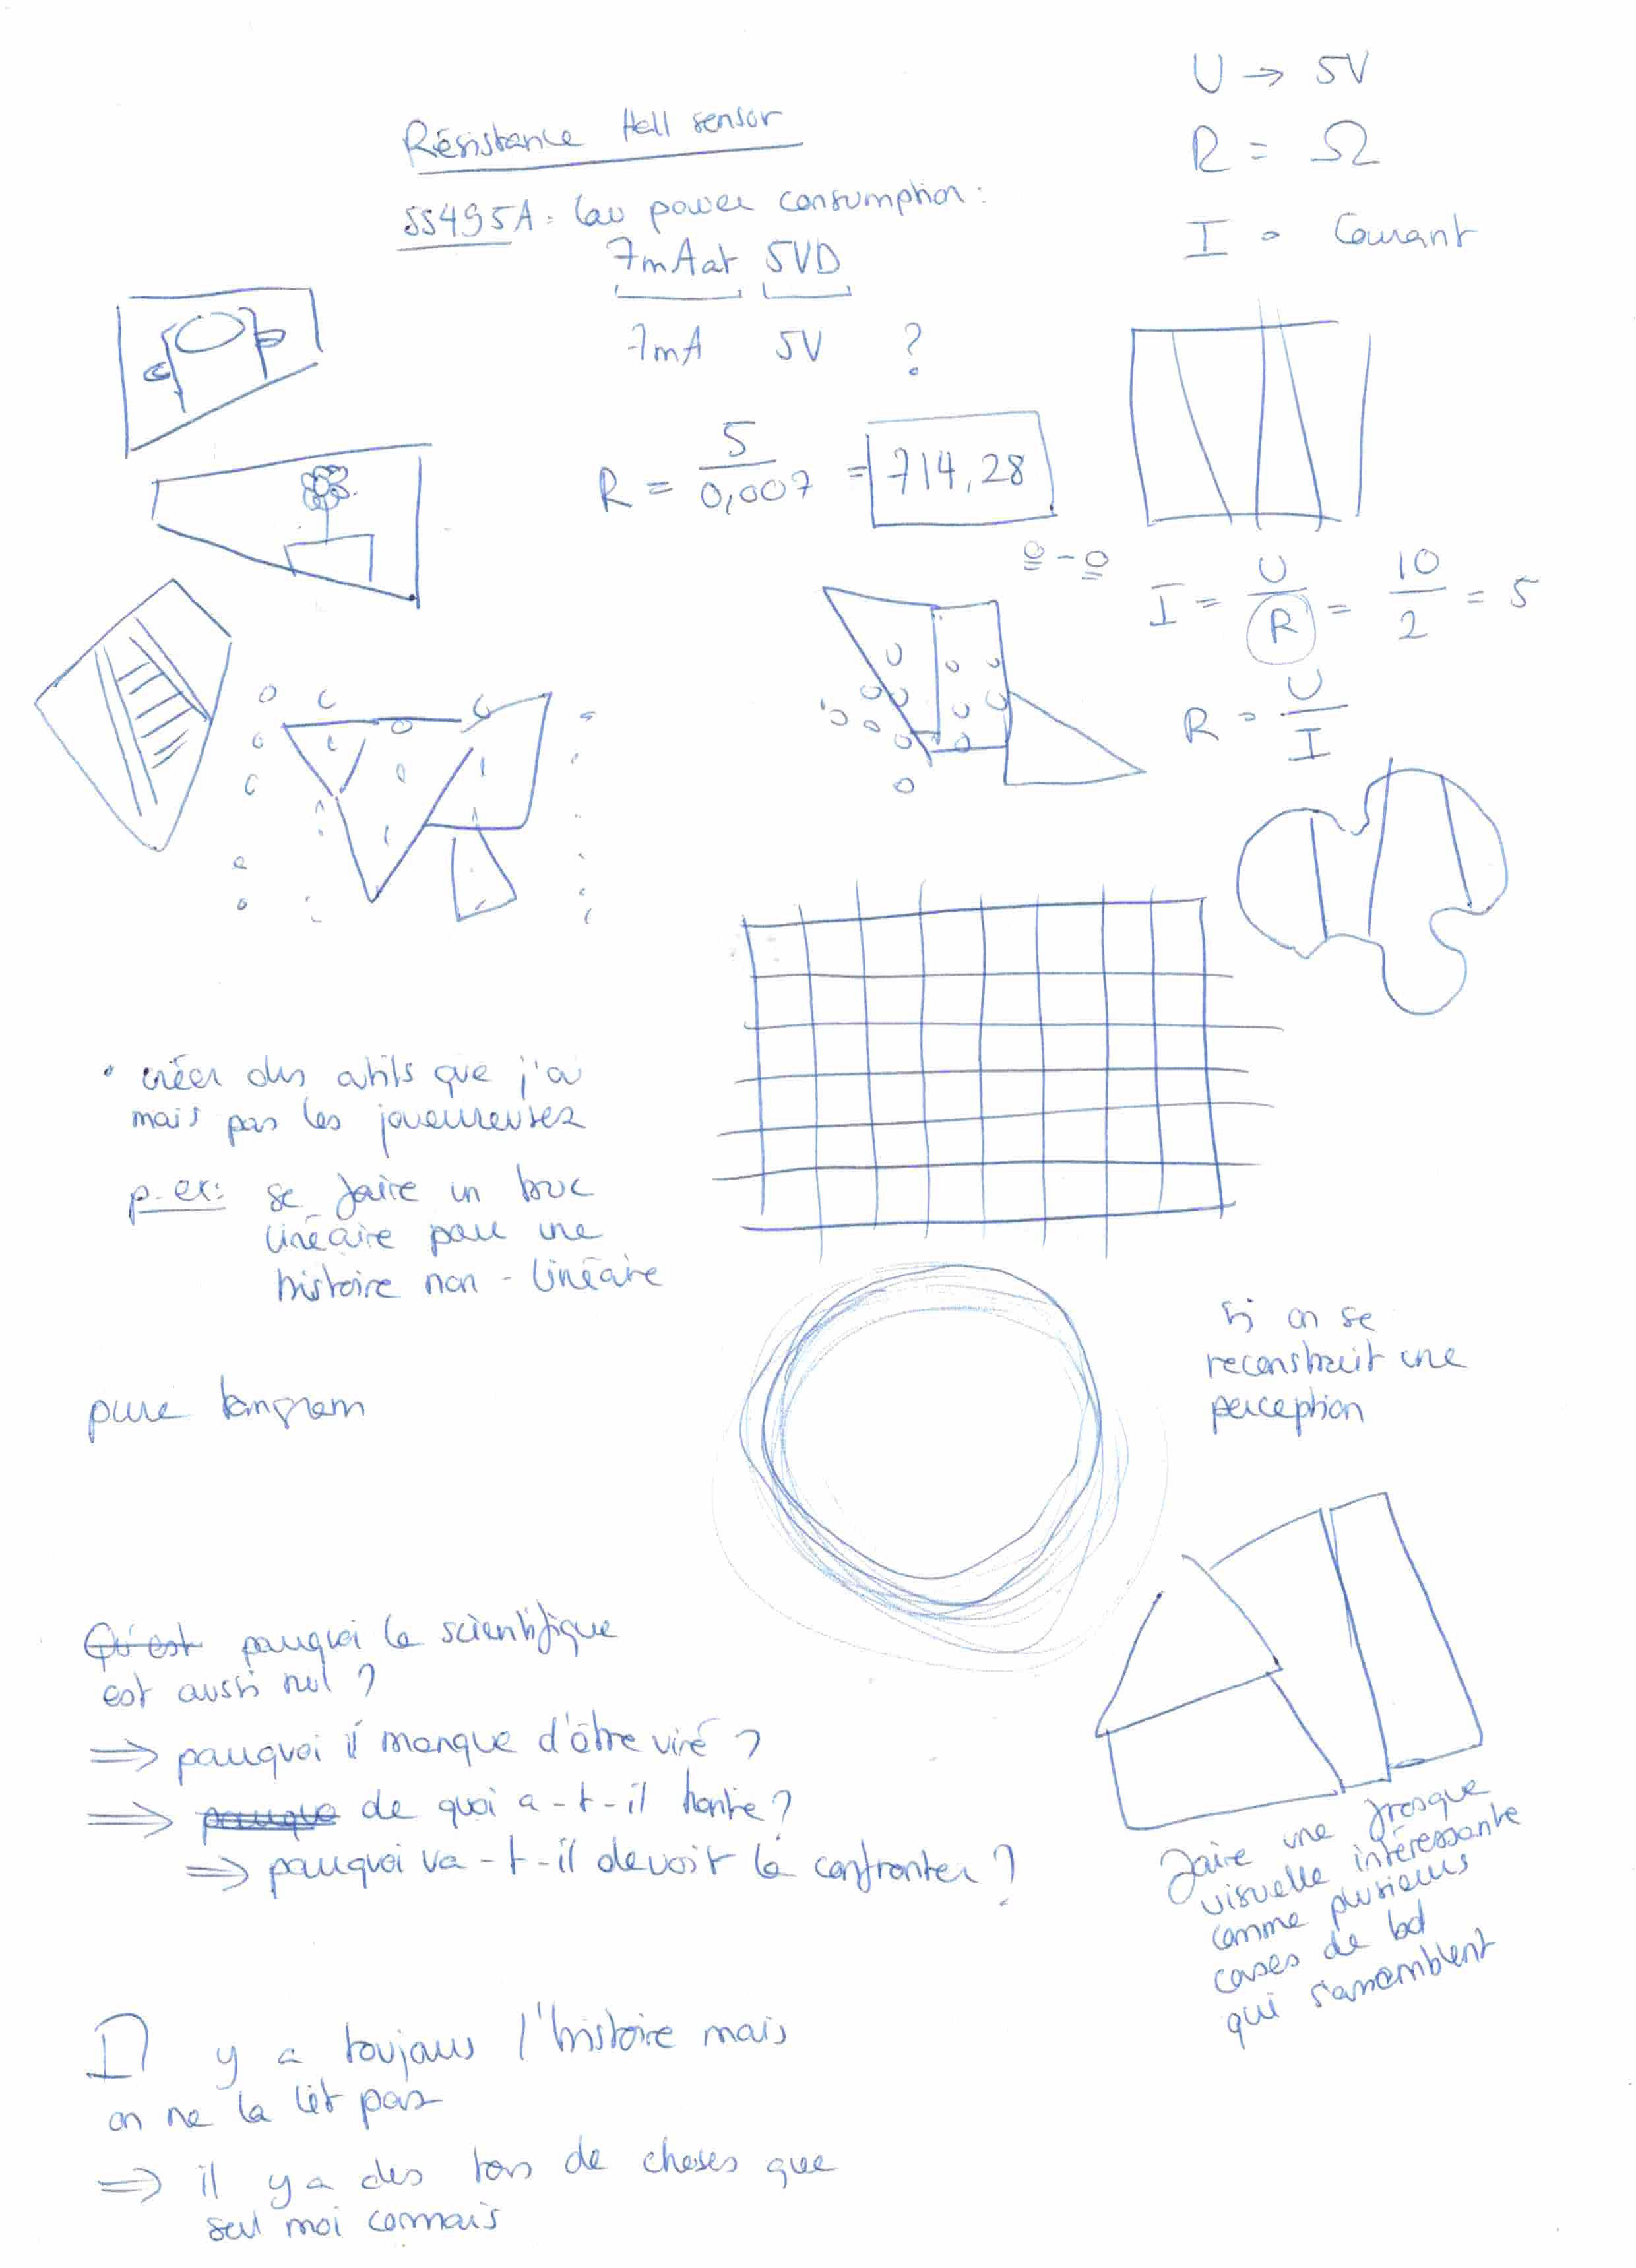 U → 5V
R = Ω
I = Courant
Résistance Hall sensor
SS495A = low power consumption:
7mA at 5VD
7mA 5V ?
R = 5 / 0,007 = 714,28
I = U / R = 10 / 2 = 5
R = U / I
• créer des outils que j'ai
mais pas les joueureuses
p. ex: se faire un truc
linéaire pour une
histoire non-linéaire
si on se
reconstruit une
perception
pure tangram
Qu'est pourquoi le scientifique
est aussi nul ?
⇒ pourquoi il manque d'être viré ?
⇒ pourquo de quoi a-t-il honte ?
⇒ pourquoi va-t-il devoir le confronter ?
faire une fresque
visuelle intéressante
comme plusieurs
cases de bd
qui s'assemblent
Il y a toujours l'histoire mais
on ne la lit pas
⇒ il y a des tons de choses que
seul moi connais